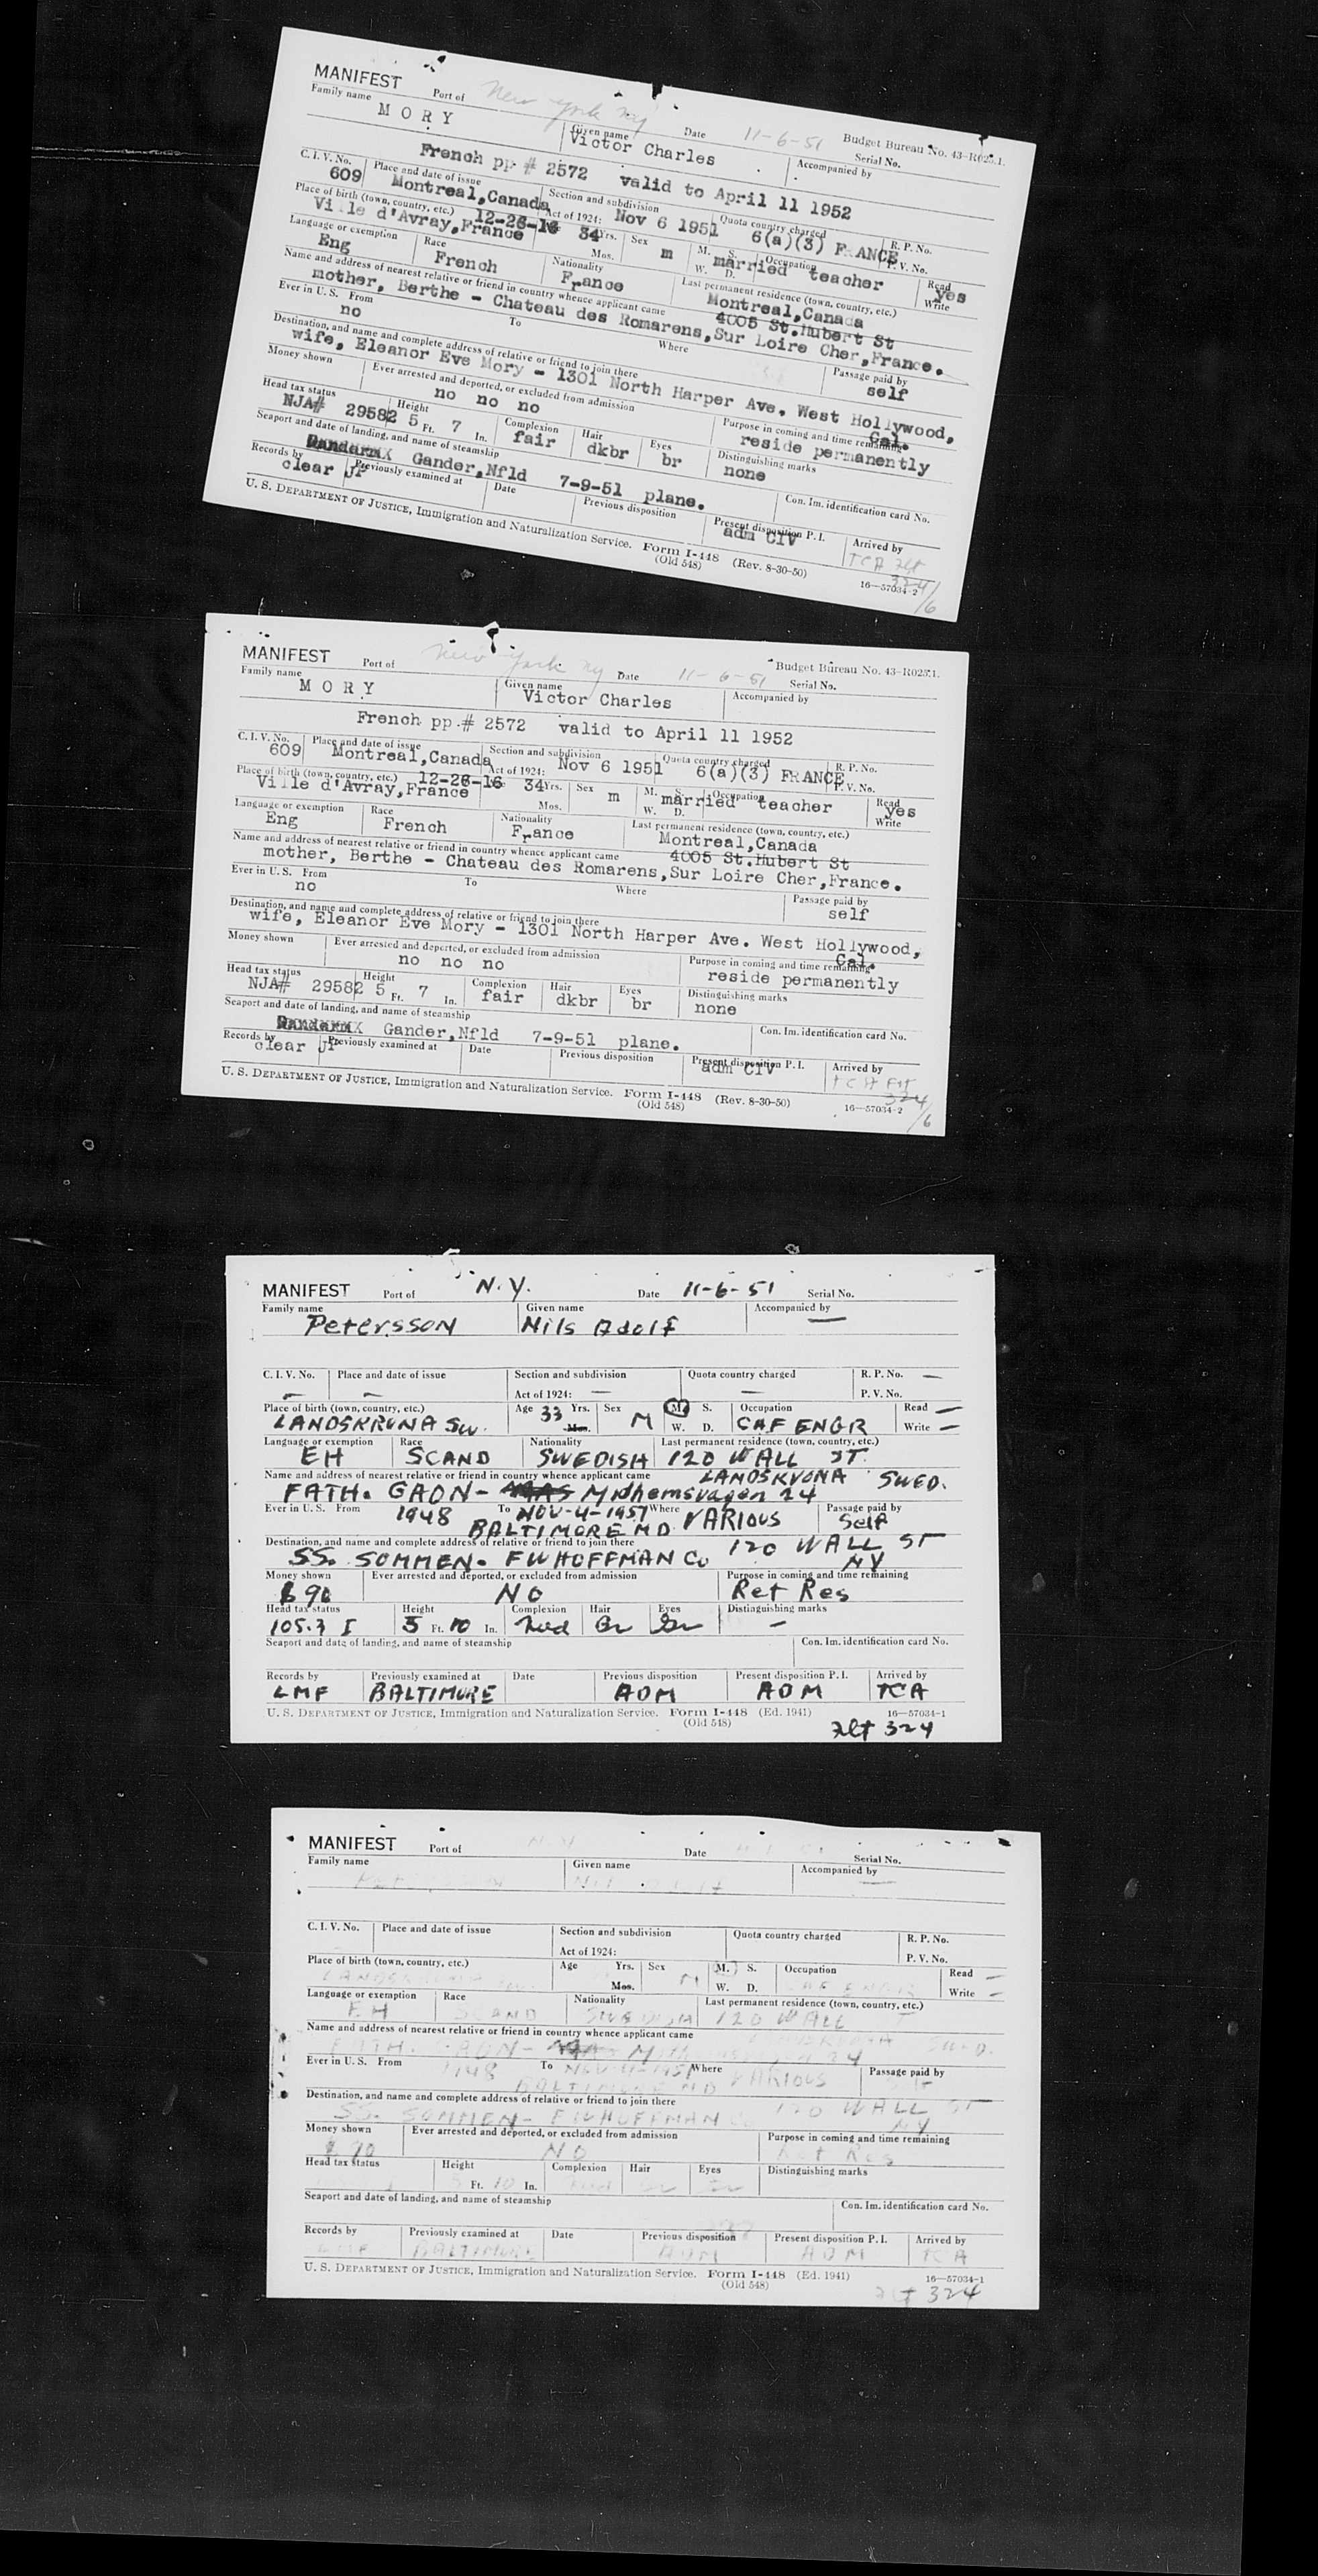 MANIFEST Port of New York NY Date 11-6-51 Budget Bureau No. 43-R025.1.
Family name Given name Serial No.
M O R Y Victor Charles Accompanied by
French pp # 2572 valid to April 11 1952
C. I. V. No. Place and date of issue Section and subdivision Quota country charged R. P. No.
609 Montreal,Canada Act of 1924: Nov 6 1951 6(a)(3) FRANCE P. V. No.
Place of birth (town, country, etc.) 12-26-16 34 Yrs. Sex M. S. Occupation Read
Ville d'Avray,France Mos. m W. D. married teacher yes Write
Language or exemption Race Nationality Last permanent residence (town, country, etc.)
Eng French France Montreal,Canada
Name and address of nearest relative or friend in country whence applicant came 4005 St.Hubert St
mother, Berthe - Chateau des Romarens,Sur Loire Cher,France.
Ever in U. S. From To Where Passage paid by
no self
Destination, and name and complete address of relative or friend to join there
wife, Eleanor Eve Mory - 1301 North Harper Ave. West Hollywood,
Money shown Ever arrested and deported, or excluded from admission Purpose in coming and time remaining Cal.
no no no reside permanently
Head tax status Height Complexion Hair Eyes Distinguishing marks
NJA# 29582 5 Ft. 7 In. fair dkbr br none
Seaport and date of landing, and name of steamship Con. Im. identification card No.
Gander,Nfld 7-9-51 plane.
Records by Previously examined at Date Previous disposition Present disposition P. I. Arrived by
clear JP adm CIV TCA flt
U. S. DEPARTMENT OF JUSTICE, Immigration and Naturalization Service. Form I-448 (Rev. 8-30-50) 16—57034-2 324/6
(Old 548)
MANIFEST Port of New York NY Date 11-6-51 Budget Bureau No. 43-R025.1.
Family name Given name Serial No.
M O R Y Victor Charles Accompanied by
French pp.# 2572 valid to April 11 1952
C. I. V. No. Place and date of issue Section and subdivision Quota country charged R. P. No.
609 Montreal,Canada Act of 1924: Nov 6 1951 6(a)(3) FRANCE P. V. No.
Place of birth (town, country, etc.) 12-26-16 34 Yrs. Sex M. S. Occupation Read
Ville d'Avray,France Mos. m W. D. married teacher yes Write
Language or exemption Race Nationality Last permanent residence (town, country, etc.)
Eng French France Montreal,Canada
Name and address of nearest relative or friend in country whence applicant came 4005 St.Hubert St
mother, Berthe - Chateau des Romarens,Sur Loire Cher,France.
Ever in U. S. From To Where Passage paid by
no self
Destination, and name and complete address of relative or friend to join there
wife, Eleanor Eve Mory - 1301 North Harper Ave. West Hollywood,
Money shown Ever arrested and deported, or excluded from admission Purpose in coming and time remaining Cal.
no no no reside permanently
Head tax status Height Complexion Hair Eyes Distinguishing marks
NJA# 29582 5 Ft. 7 In. fair dkbr br none
Seaport and date of landing, and name of steamship Con. Im. identification card No.
Gander,Nfld 7-9-51 plane.
Records by Previously examined at Date Previous disposition Present disposition P. I. Arrived by
clear JP adm CIV TCA Flt
U. S. DEPARTMENT OF JUSTICE, Immigration and Naturalization Service. Form I-448 (Rev. 8-30-50) 16—57034-2 324/6
(Old 548)
MANIFEST Port of N.Y. Date 11-6-51 Serial No.
Family name Given name Accompanied by
Petersson Nils Adolf —
C. I. V. No. Place and date of issue Section and subdivision Quota country charged R. P. No. —
— — Act of 1924: — — P. V. No.
Place of birth (town, country, etc.) Age 33 Yrs. Sex M. S. Occupation Read —
LANDSKRUNA SW. Mos. M W. D. CHF ENGR Write —
Language or exemption Race Nationality Last permanent residence (town, country, etc.)
EH SCAND SWEDISH 120 WALL ST.
Name and address of nearest relative or friend in country whence applicant came LANDSKVONA SWED.
FATH. GADN- 24
Ever in U. S. From 1948 To NOV-4-1951 Where VARIOUS Passage paid by
BALTIMORE MD Self
Destination, and name and complete address of relative or friend to join there 120 WALL ST
SS. SOMMEN- FWHOFFMAN Co NY
Money shown Ever arrested and deported, or excluded from admission Purpose in coming and time remaining
$ 90 NO Ret Res
Head tax status Height Complexion Hair Eyes Distinguishing marks
105.3 I 5 Ft. 10 In. Med Br Gr —
Seaport and date of landing, and name of steamship Con. Im. identification card No.
Records by Previously examined at Date Previous disposition Present disposition P. I. Arrived by
LMF BALTIMORE ADM ADM TCA
U. S. DEPARTMENT OF JUSTICE, Immigration and Naturalization Service. Form I-448 (Ed. 1941) 16—57034-1
(Old 548) flt 324
MANIFEST Port of Date Serial No.
Family name Given name Accompanied by
—
C. I. V. No. Place and date of issue Section and subdivision Quota country charged R. P. No.
Act of 1924: P. V. No.
Place of birth (town, country, etc.) Age Yrs. Sex M. S. Occupation Read —
Mos. M W. D. Write —
Language or exemption Race Nationality Last permanent residence (town, country, etc.)
EH SCAND SWEDISH 120 WALL
Name and address of nearest relative or friend in country whence applicant came SWED.
24
Ever in U. S. From 1948 To NOV-4-1951 Where VARIOUS Passage paid by
BALTIMORE MD
Destination, and name and complete address of relative or friend to join there 120 WALL ST
SS. SOMMEN- FWHOFFMAN Co NY
Money shown Ever arrested and deported, or excluded from admission Purpose in coming and time remaining
$ 90 NO Ret Res
Head tax status Height Complexion Hair Eyes Distinguishing marks
5 Ft. 10 In.
Seaport and date of landing, and name of steamship Con. Im. identification card No.
Records by Previously examined at Date Previous disposition Present disposition P. I. Arrived by
LMF BALTIMORE ADM ADM TCA
U. S. DEPARTMENT OF JUSTICE, Immigration and Naturalization Service. Form I-448 (Ed. 1941) 16—57034-1
(Old 548) flt 324